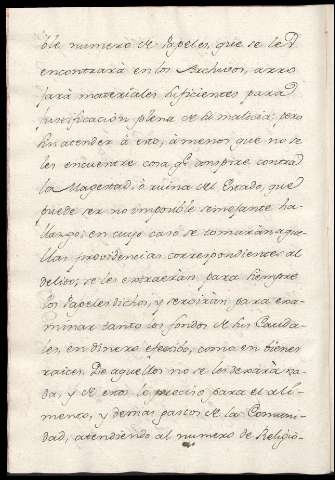 ble numero de Papeles, que se les
encontrará en los Archivos, arro
jará materiales suficientes para
justificación plena de su malicia; pero
sin atender á esto, á menor que no se
les encuentre cosa qe. conspire contra
la Magestad, ó ruina del Estado, que
puede ser no imposible semejante ha-
llazgo; en cuyo caso se tomarán aque
llas providencias correspondientes al
delito; se les extraerán para siempre
los Papeles dichos, y servirán para exa-
minar tanto los fondos de sus Cauda-
les, en dinero efectivo, como en bienes
raices. De aquellos no se les dexará na-
da, y de estos lo preciso para el ali-
mento, y demas gastos de la Comuni-
dad, atendiendo al numero de Religio-